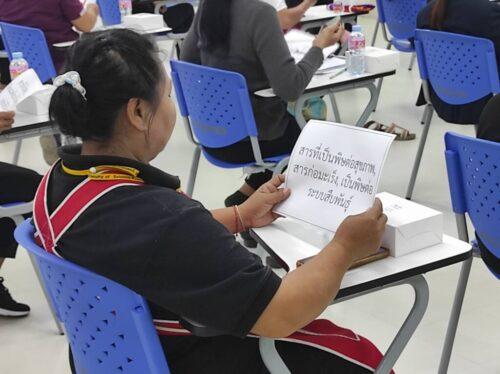 สารที่เป็นพิษต่อสุขภาพ,
สารก่อมะเร็ง, เป็นพิษต่อ
ระบบสืบพันธุ์